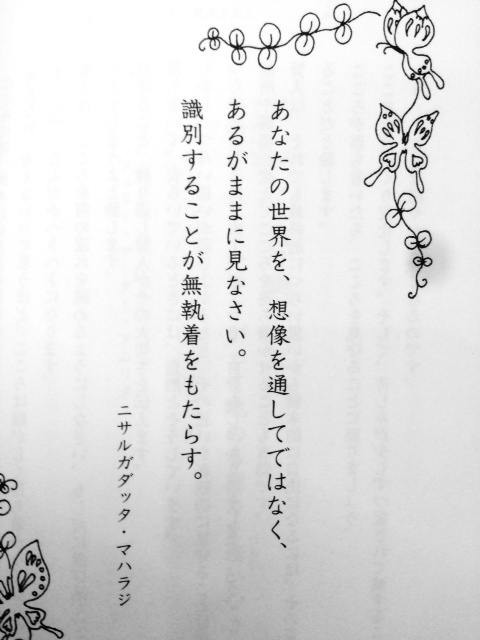 あなたの世界を、想像を通してではなく、
あるがままに見なさい。
識別することが無執着をもたらす。
ニサルガダッタ・マハラジ